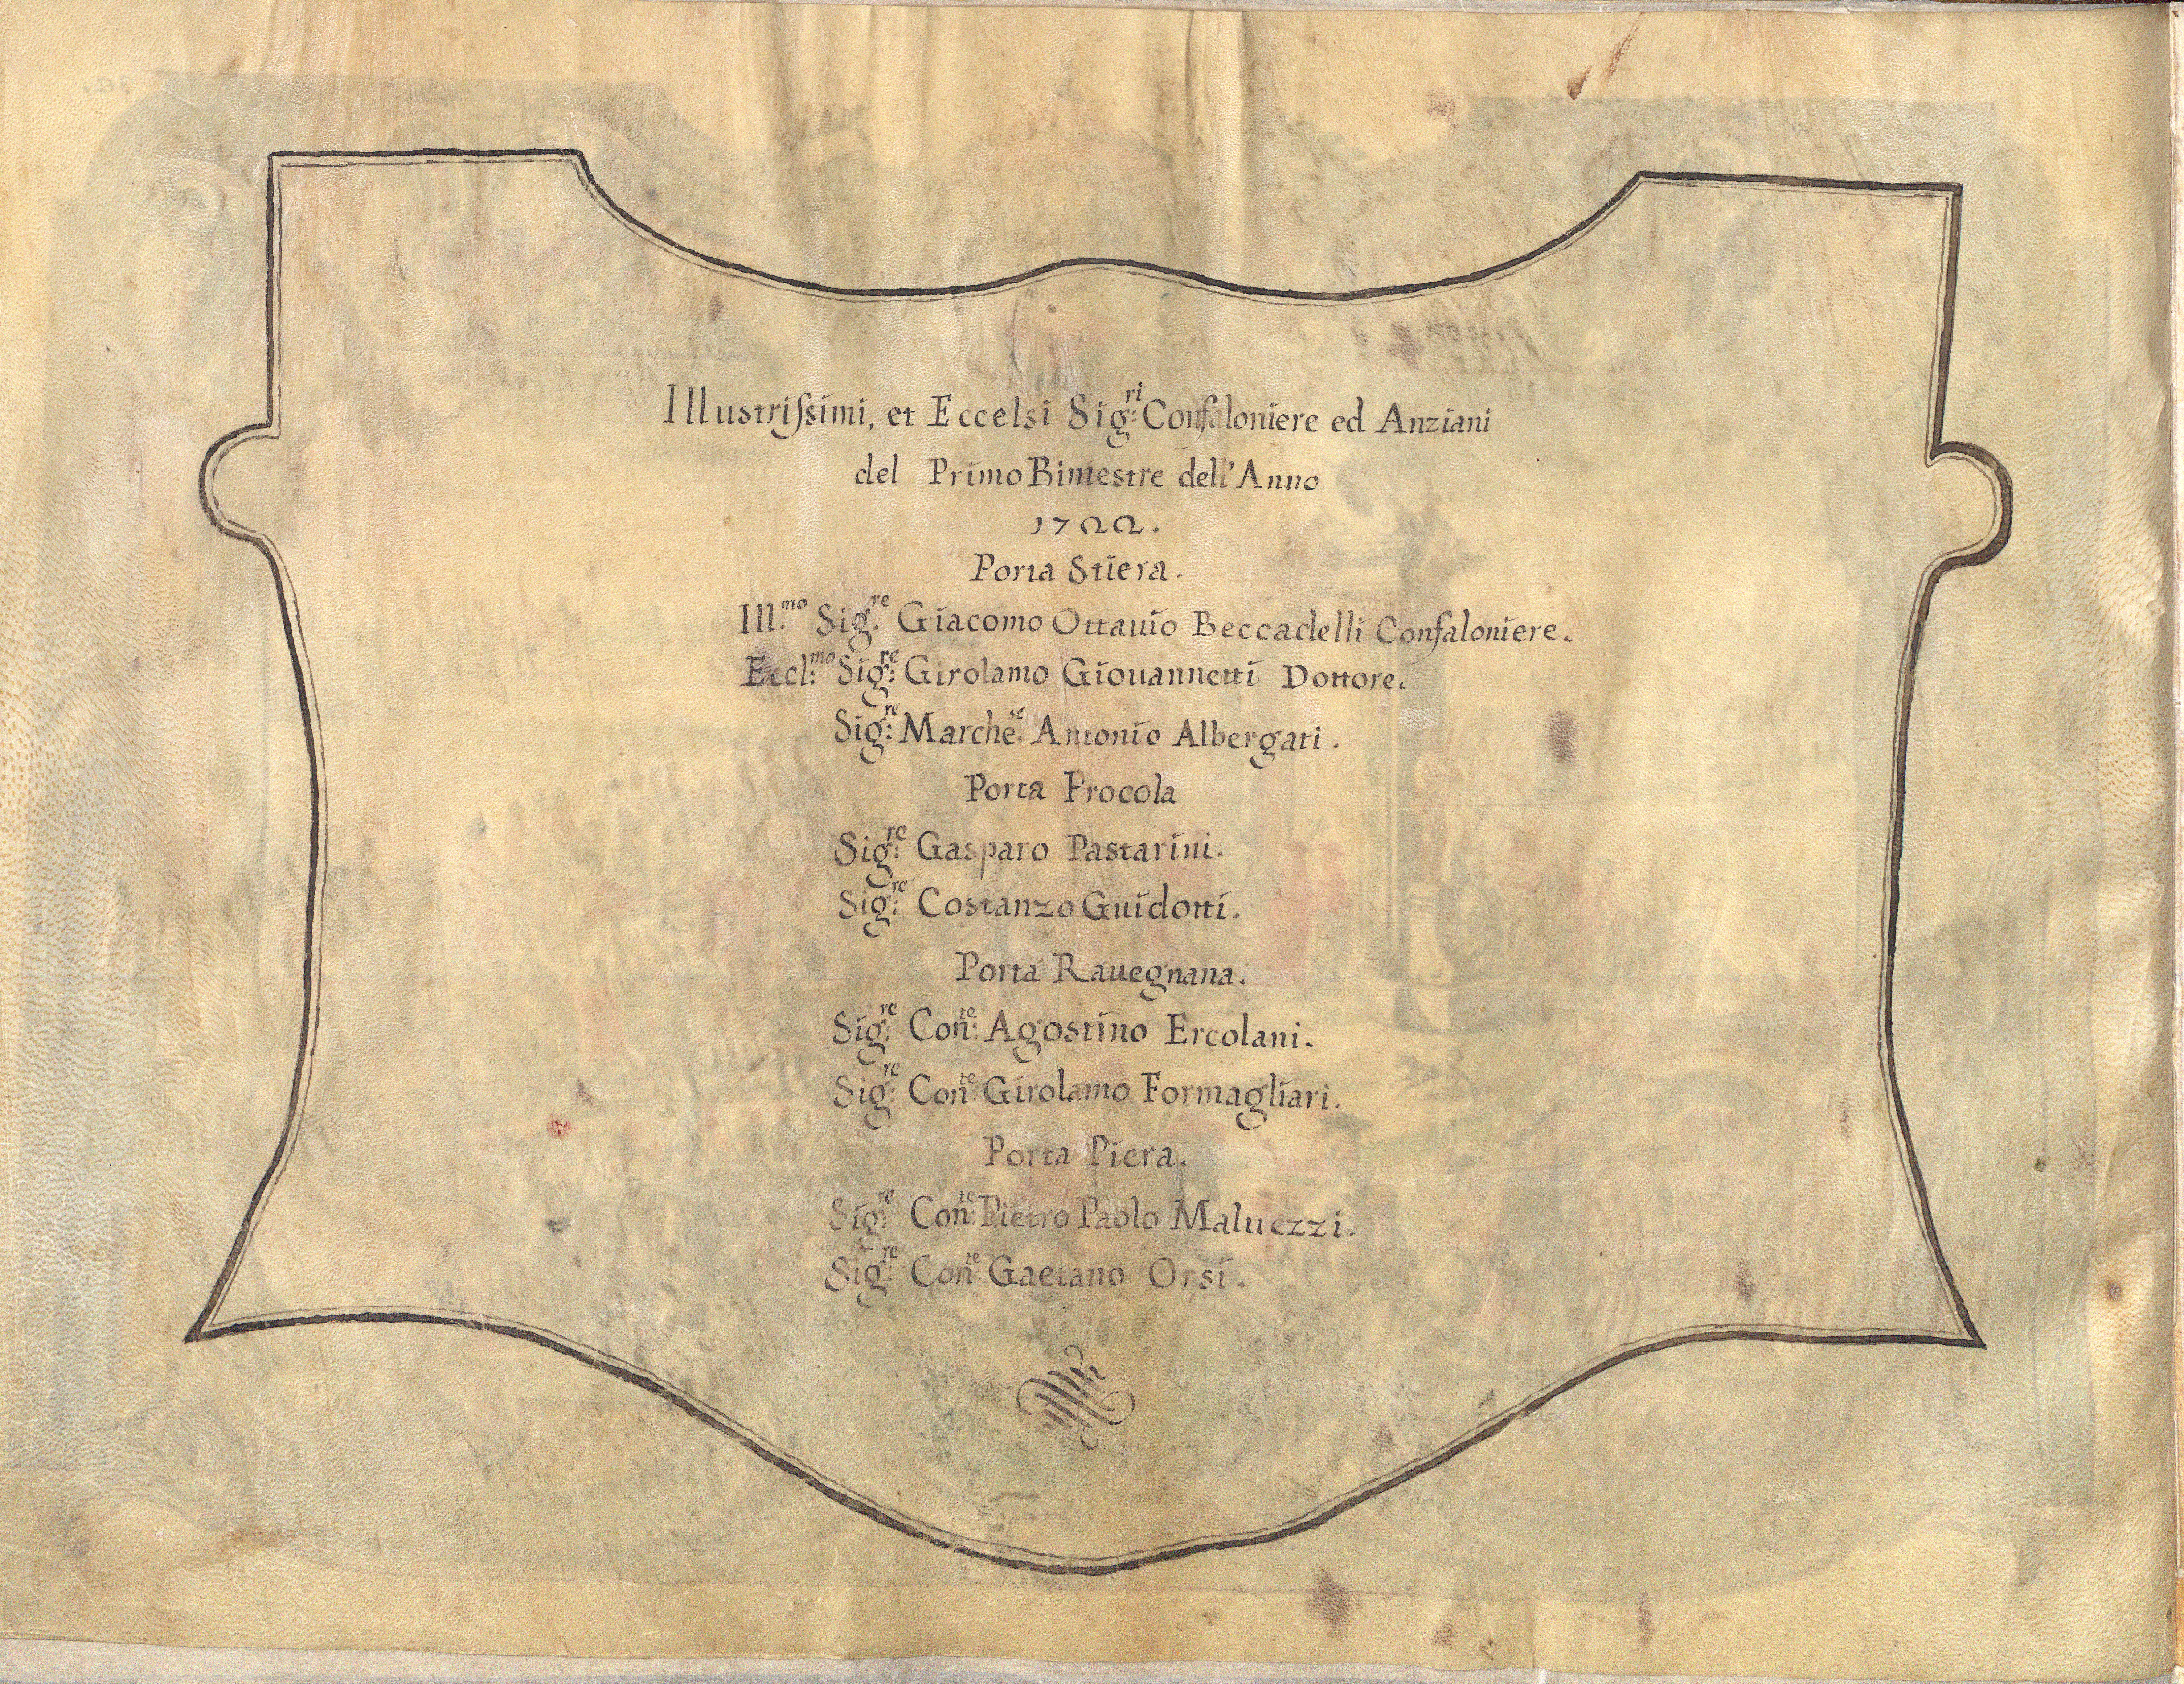 Illustrißimi, et Eccelsi Sig:ri Confaloniere ed Anziani
del Primo Bimestre dell'Anno
1722.
Porta Stiera.
Ill:mo Sig:re Giacomo Ottauio Beccadelli Confaloniere.
Eccl:mo Sig:re Girolamo Giouannetti Dottore.
Sig:re Marche:se Antonio Albergati.
Porta Procola
Sig:re Gasparo Pastarini.
Sig:re Costanzo Guidotti.
Porta Rauegnana.
Sig:re Con:te Agostino Ercolani.
Sig:re Con:te Girolamo Formagliari.
Porta Piera.
Sig:re Con:te Pietro Paolo Maluezzi.
Sig:re Con:te Gaetano Orsi.